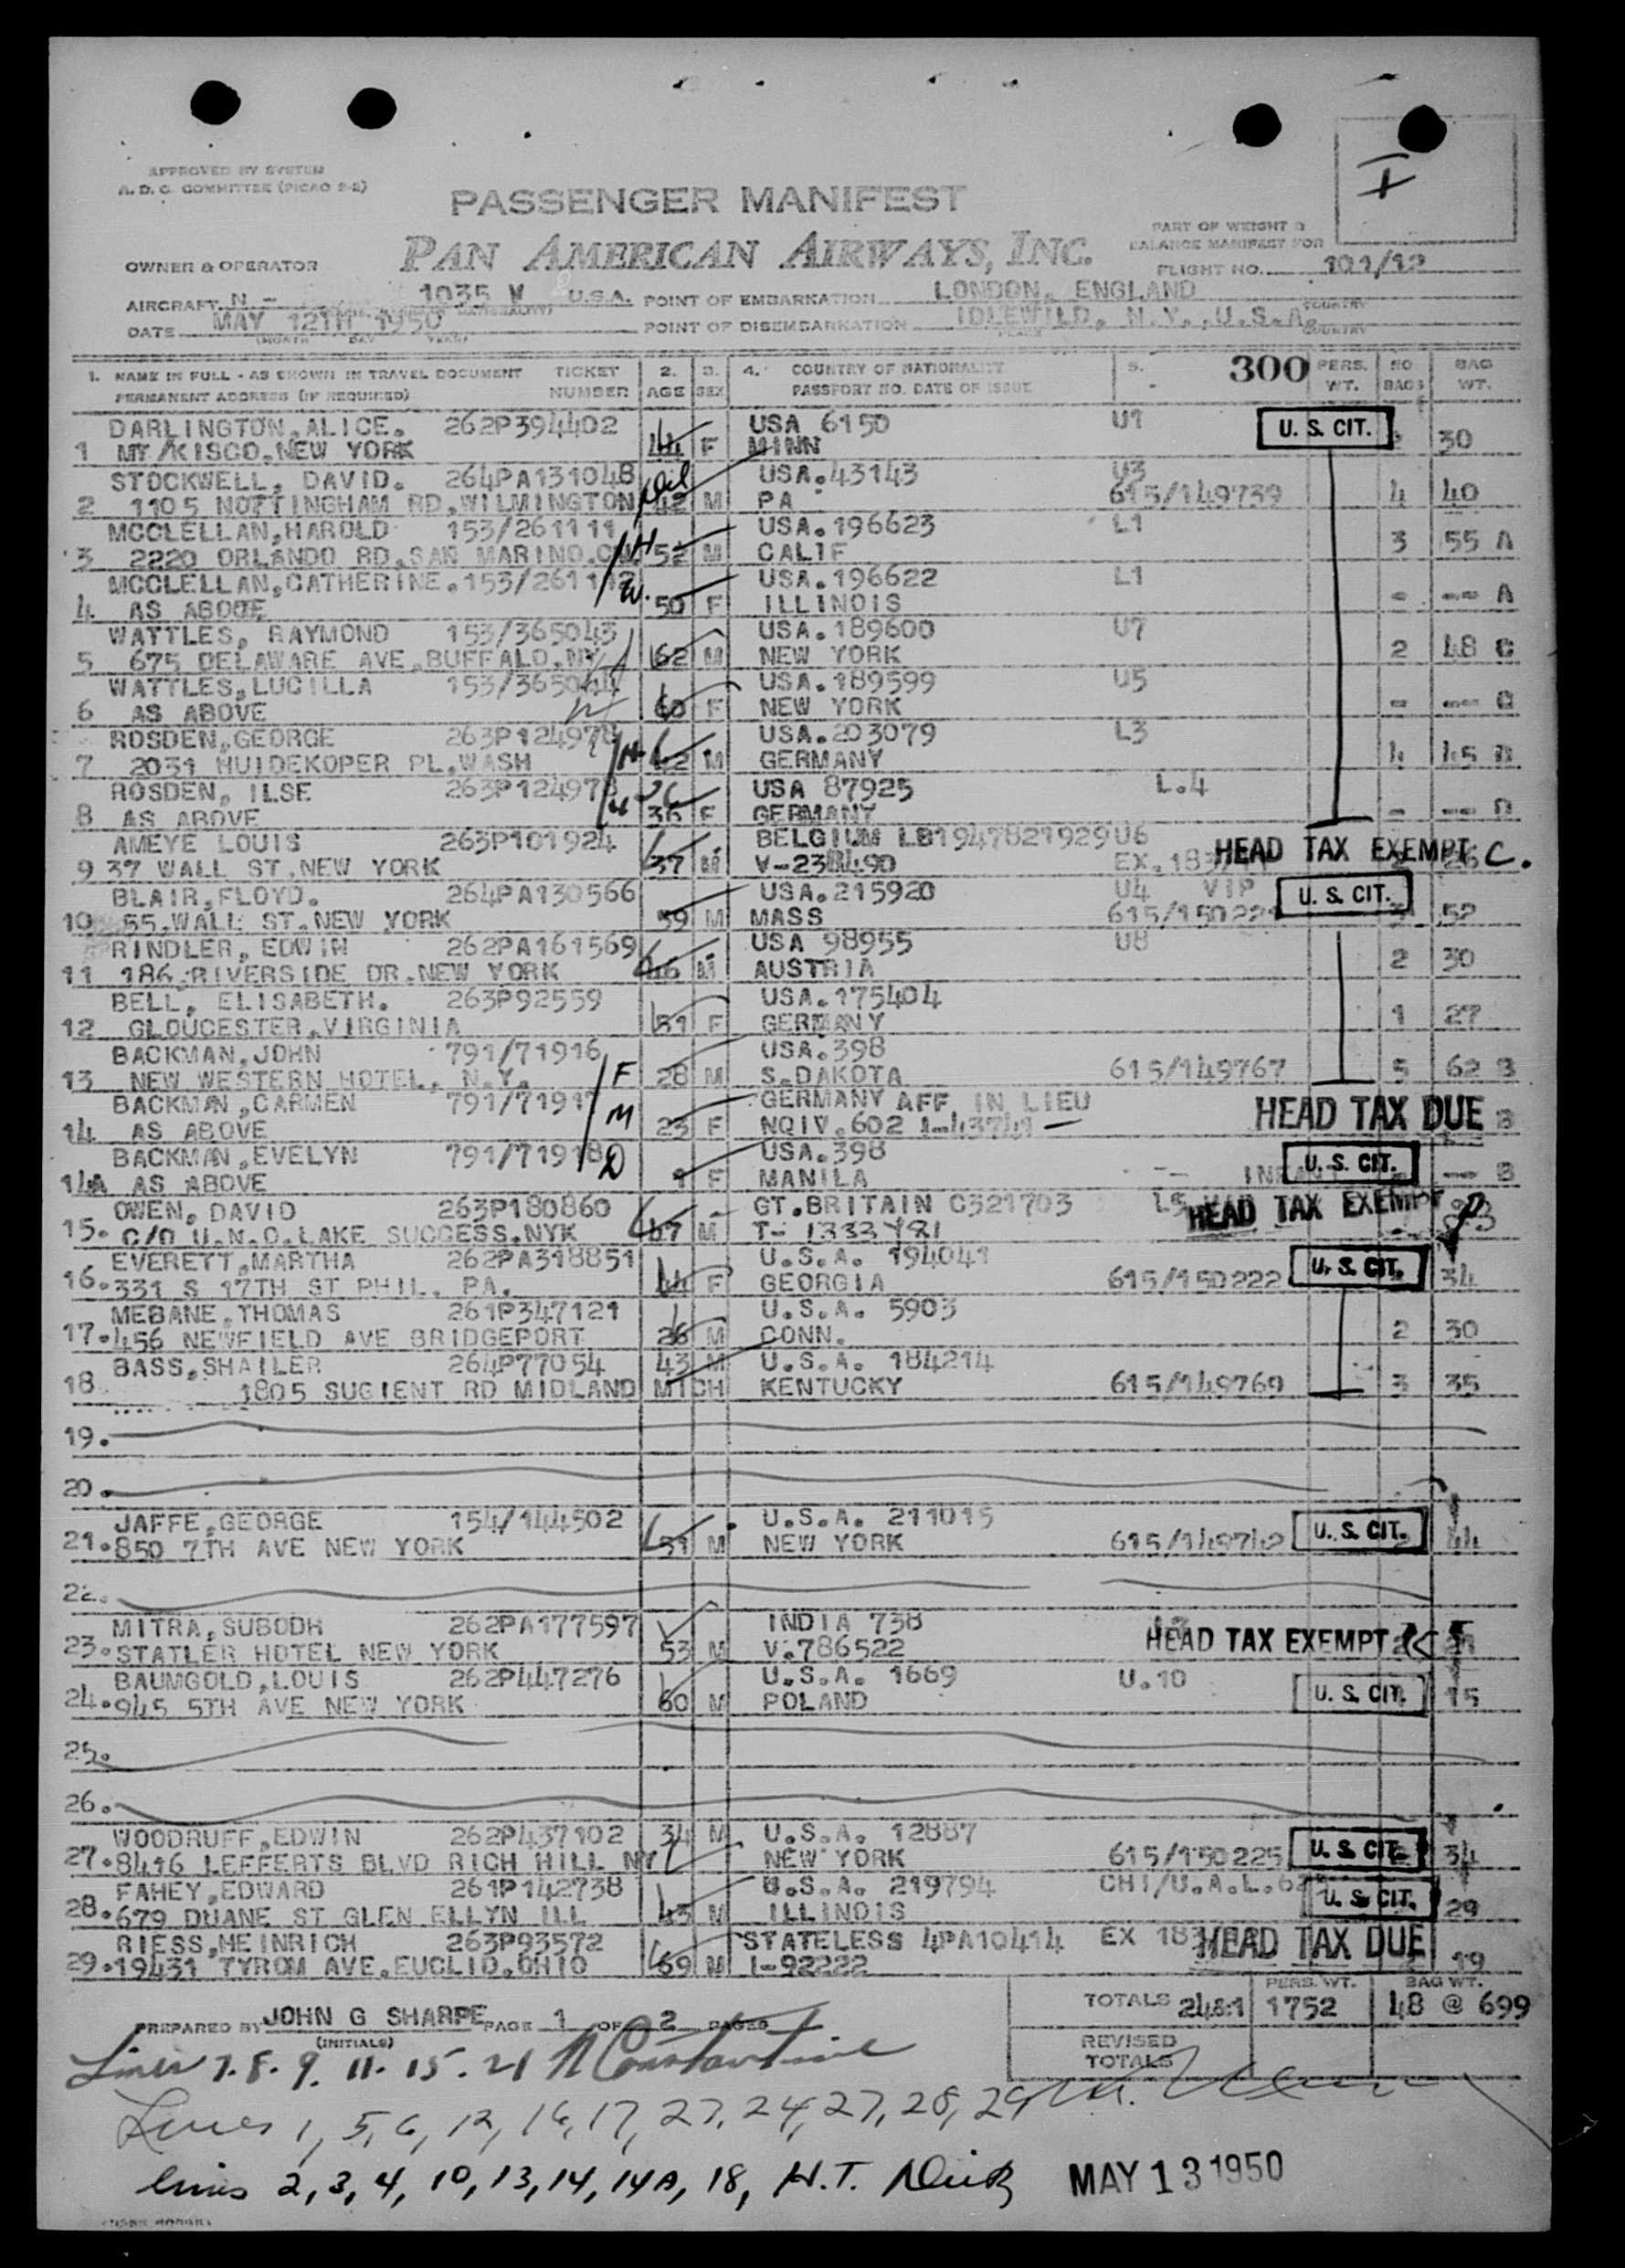 I
APPROVED BY SYSTEM
A. D. C. COMMITTEE (PICAO 2-2)
PASSENGER MANIFEST
PART OF WEIGHT &
BALANCE MANIFEST FOR
PAN AMERICAN AIRWAYS, INC.
OWNER & OPERATOR
FLIGHT NO. 101/12
AIRCRAFT N - 1035 V U.S.A. POINT OF EMBARKATION LONDON, ENGLAND
COUNTRY
DATE MAY 12TH 1950 POINT OF DISEMBARKATION IDLEWILD, N.Y.,U.S.A.
(MONTH DAY YEAR) PLACE COUNTRY
1. NAME IN FULL - AS SHOWN IN TRAVEL DOCUMENT TICKET 2. 3. 4. COUNTRY OF NATIONALITY 5. 300 PERS. NO BAG
PERMANENT ADDRESS (IF REQUIRED) NUMBER AGE SEX PASSPORT NO. DATE OF ISSUE WT. BAGS WT.
DARLINGTON,ALICE. 262P394402 USA 6150 U1 U. S. CIT.
1 MT/KISCO,NEW YORK 44 F MINN 30
STOCKWELL, DAVID. 264PA131048 USA.43143 U3
2 1105 NOTTINGHAM RD,WILMINGTON 42 M PA 615/149739 4 40
MCCLELLAN,HAROLD 153/261111 H USA.196623 L1
3 2220 ORLANDO RD,SAN MARINO.CAL 52 M CALIF 3 55 A
MCCLELLAN,CATHERINE.153/261112 W. USA.196622 L1
4 AS ABOVE 50 F ILLINOIS - -- A
WATTLES, RAYMOND 153/365043 USA.189600 U7
5 675 DELAWARE AVE,BUFFALO,NY H 62 M NEW YORK 2 48 C
WATTLES,LUCILLA 153/365044 USA.189599 U5
6 AS ABOVE W 60 F NEW YORK - --
ROSDEN,GEORGE 263P124978 USA.203079 L3
7 2031 HUIDEKOPER PL,WASH H M GERMANY 4 45 D
ROSDEN, ILSE 263P124979 USA 87925 L.4
8 AS ABOVE 36 F GERMANY - -- D
AMEYE LOUIS 263P101924 BELGIUM LB1947821929 U6
9 37 WALL ST.NEW YORK 37 M EX.183 HEAD TAX EXEMPT C. 26
BLAIR,FLOYD. 264PA130566 USA.215920 U4 VIP U. S. CIT.
10 55,WALL ST.NEW YORK 59 M MASS 615/150221 3 52
RINDLER, EDWIN 262PA161569 USA 98955 U8
11 186 RIVERSIDE DR.NEW YORK 46 M AUSTRIA 2 30
BELL, ELISABETH. 263P92559 USA.175404
12 GLOUCESTER,VIRGINIA 51 F GERMANY 1 27
BACKMAN,JOHN 791/71916 USA.398
13 NEW WESTERN HOTEL, N.Y. F 28 M S.DAKOTA 615/149767 5 62 B
BACKMAN,CARMEN 791/71917 GERMANY AFF IN LIEU HEAD TAX DUE B
14 AS ABOVE M 23 F NQIV.602
BACKMAN,EVELYN 791/71918 D USA.398 U. S. CIT.
14A AS ABOVE 1 F MANILA INFANT -- B
OWEN, DAVID 263P180860 GT.BRITAIN C321703 L5 HEAD TAX EXEMPT
15. C/O U.N.O.LAKE SUCCESS.NYK 47 M T-
EVERETT,MARTHA 262PA318851 U.S.A. 194041 U. S. CIT.
16.331 S 17TH ST PHIL. PA. 44 F GEORGIA 615/150222 34
MEBANE,THOMAS 261P347121 U.S.A. 5903
17.456 NEWFIELD AVE BRIDGEPORT 26 M CONN. 2 30
BASS,SHAILER 264P77054 43 M U.S.A. 184214
18 1805 SUGIENT RD MIDLAND MICH KENTUCKY 615/149769 3 35
19.
20.
JAFFE,GEORGE 154/144502 U.S.A. 211015
21.850 7TH AVE NEW YORK 51 M NEW YORK 615/149742 U. S. CIT. 44
22.
MITRA,SUBODH 262PA177597 INDIA 738
23.STATLER HOTEL NEW YORK 53 M V.786522 HEAD TAX EXEMPT
BAUMGOLD,LOUIS 262P447276 U.S.A. 1669 U.10
24.945 5TH AVE NEW YORK 60 M POLAND U. S. CIT. 15
25.
26.
WOODRUFF,EDWIN 262P437102 34 M U.S.A. 12887
27.8416 LEFFERTS BLVD RICH HILL NY NEW YORK 615/150225 U. S. CIT. 34
FAHEY,EDWARD 261P142738 U.S.A. 219794 CHI/U.A.L.
28.679 DUANE ST GLEN ELLYN ILL 43 M ILLINOIS U. S. CIT. 29
RIESS,HEINRICH 263P93572 STATELESS 4PA10414 EX 183 HEAD TAX DUE
29.19431 TYROM AVE,EUCLID,OHIO 69 M I-92222 19
PERS. WT. BAG WT.
TOTALS 1752 48 @ 699
PREPARED BY JOHN G SHARPE PAGE 1 OF 2 PAGES
(INITIALS)
REVISED
TOTALS
Lines 7. 8. 9. 11. 15. 21 N Constantine
Lines 1, 5, 6, 12, 16, 17, 23, 24, 27, 28, 29
lines 2, 3, 4, 10, 13, 14, 14A, 18, H.T.
MAY 13 1950